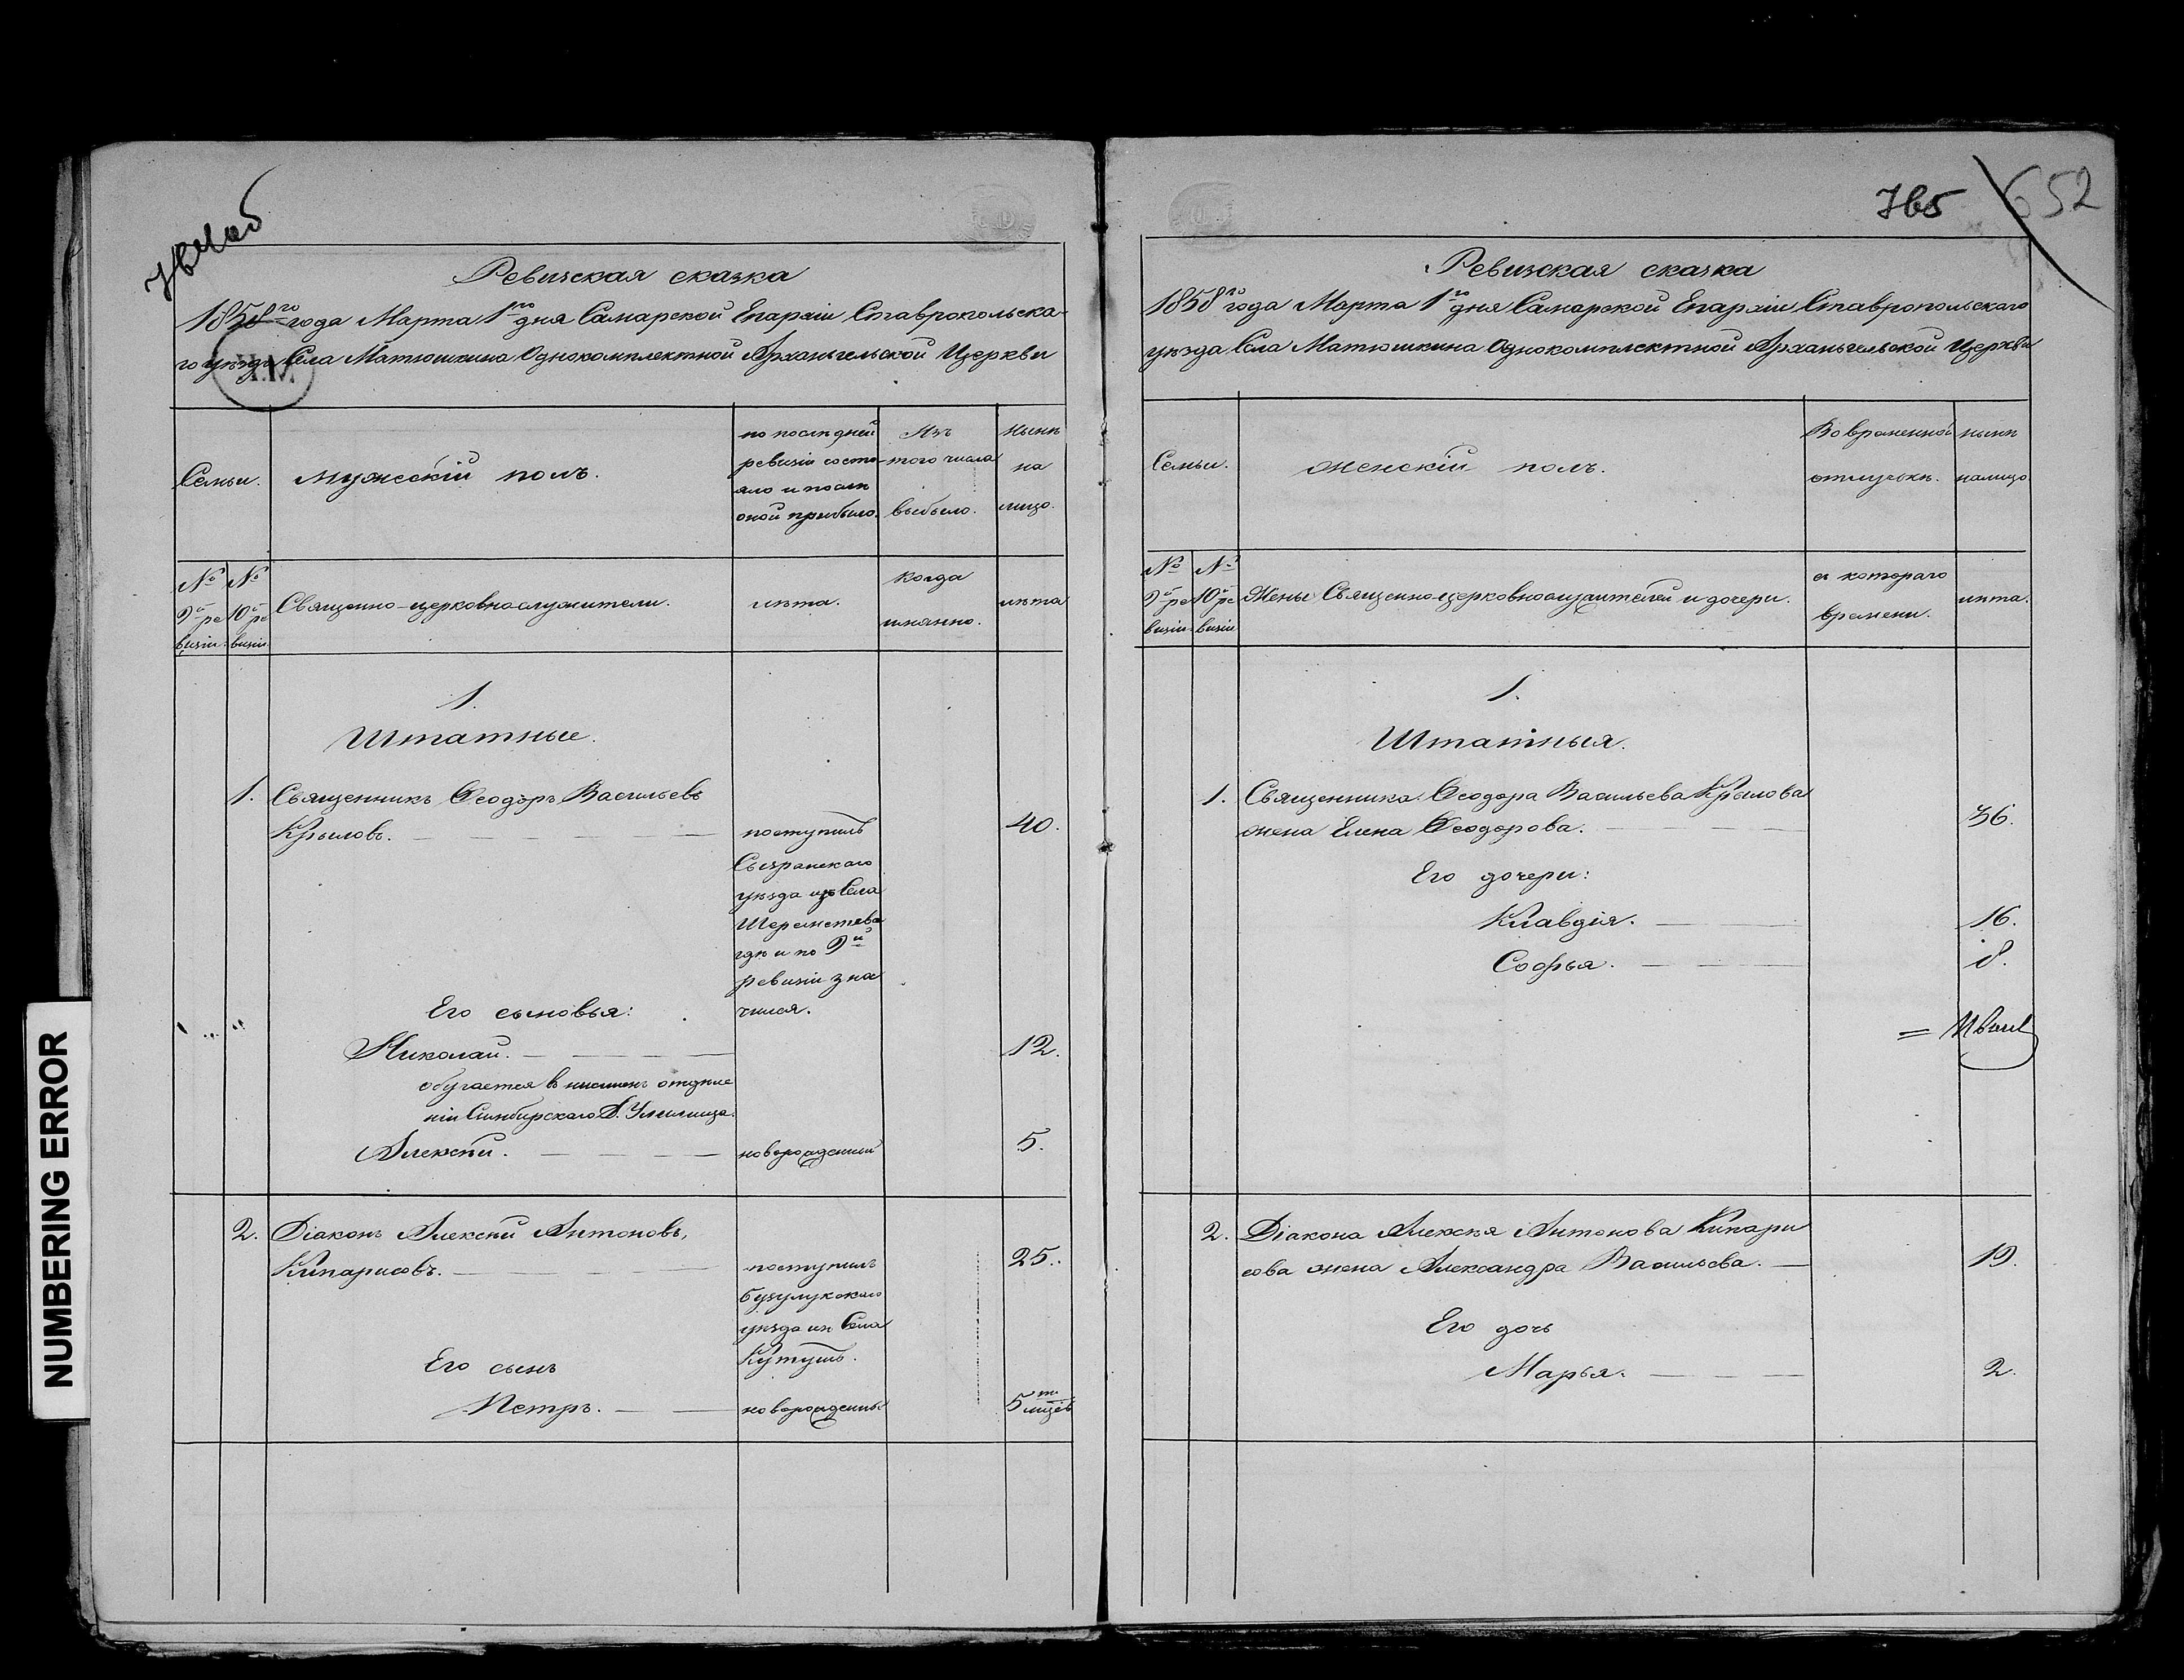 Ревизская сказка
1858го года Марта 1го дня Самарской Епархіи Ставропольска-
го уѣзда Села Матюшкина Однокомплектной Архангельской Церкви
Семьи.
мужескій полъ.
по послѣдней
ревизіи состо-
яло и послѣ
оной прибыло.
Изъ
того числа
выбыло.
нынѣ
на
лицо.
№
9й ре
визіи.
№
10й ре
визіи.
Священно-церковнослужители.
лѣта.
когда
имянно.
лѣта
1.
Штатные.
1.
Священникъ Ѳеодоръ Васильевъ
Крыловъ.
поступилъ
Сызранскаго
уѣзда изъ Села
Шереметева
гдѣ и по 9й
ревизіи зна
чился.
40.
Его сыновья:
Николай.
12.
обучается в низшемъ отдѣле
ніи Симбирскаго Д. Училища.
Алексѣй.
новорожденный
5.
2.
Діаконъ Алексѣй Антоновъ,
Кипарисовъ.
поступилъ
Бузулукскаго
уѣзда из Села
Кутушъ.
25.
Его сынъ
Петръ.
новорожденны
5ти
мцѣв
765
652
Ревизская сказка
1858го года Марта 1го дня Самарской Епархіи Ставропольскаго
уѣзда Села Матюшкина Однокомплектной Архангельской Церкви
Семьи.
женскій полъ.
Во временной
отлучькѣ.
нынѣ
налицо.
№
9й ре
визіи.
№
10й ре
визіи
Жены Священноцерковнослужителей и дочери.
съ котораго
времени.
лѣта.
1.
Штатныя.
1.
Священника Ѳеодора Васильева Крылова
жена Елена Ѳеодорова.
36.
Его дочери:
Клавдія.
16.
Софья.
8.
2.
Діакона Алексѣя Антонова Кипари
сова жена Александра Васильева.
19.
Его дочь
Марья.
2.
NUMBERING ERROR